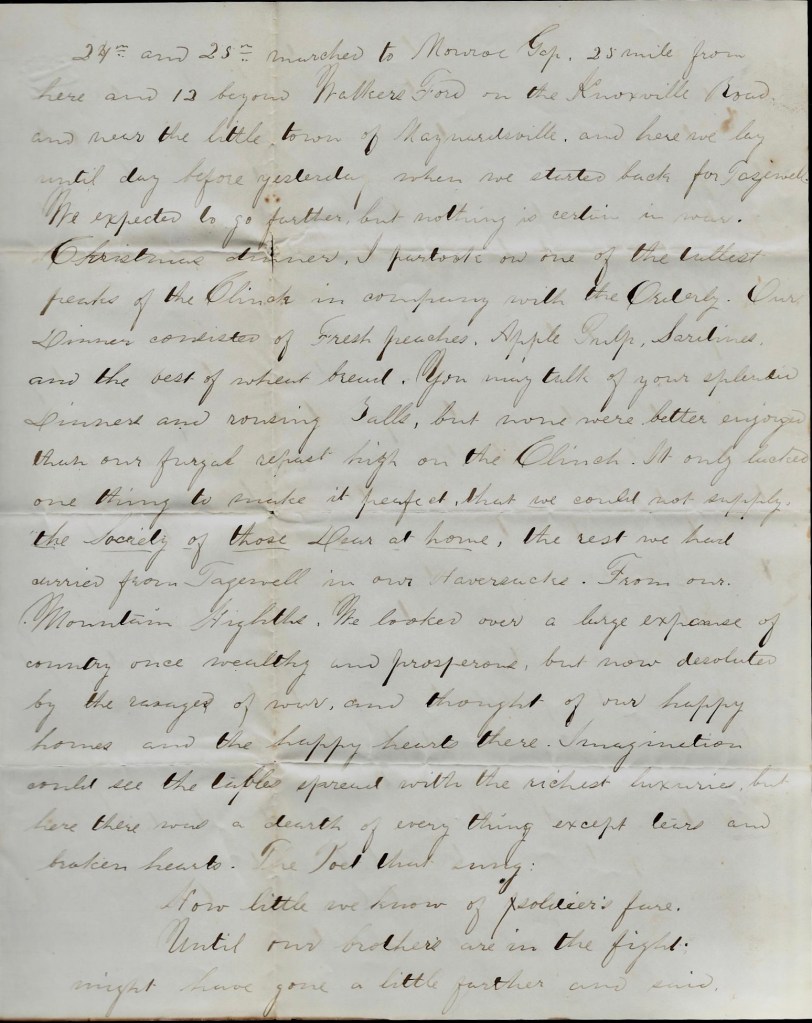 24th and 25th marched to Monroe Gap. 25 mile from
here and 12 beyond Walkers Ford on the Knoxville Road.
and near the little town of Maynardsville. and here we lay
until day before yesterday when we started back for Tazewell.
We expected to go further, but nothing is certain in war.
Christmas dinner, I partook on one of the tallest
peaks of the Clinch in company with the Orderly. Our
Dinner consisted of Fresh peaches, Apple Pulp, Sardines,
and the best of wheat bread. You may talk of your splendid
Dinners and rousing Balls, but none were better enjoyed
than our frugal repast high on the Clinch. It only lacked
one thing to make it perfect, that we could not supply.
the Society of those Dear at home, the rest we had
carried from Tazewell in our Haversacks. From our
Mountain Highths. We looked over a large expanse of
country once wealthy and prosperous, but now desolated
by the ravages of war, and thought of our happy
homes and the happy hearts there. Imagination
could see the tables spread with the richest luxuries, but
here there was a dearth of every thing except tears and
broken hearts. The Poet that sung:
How little we know of soldier's fare.
Until our brothers are in the fight.
might have gone a little farther and said.